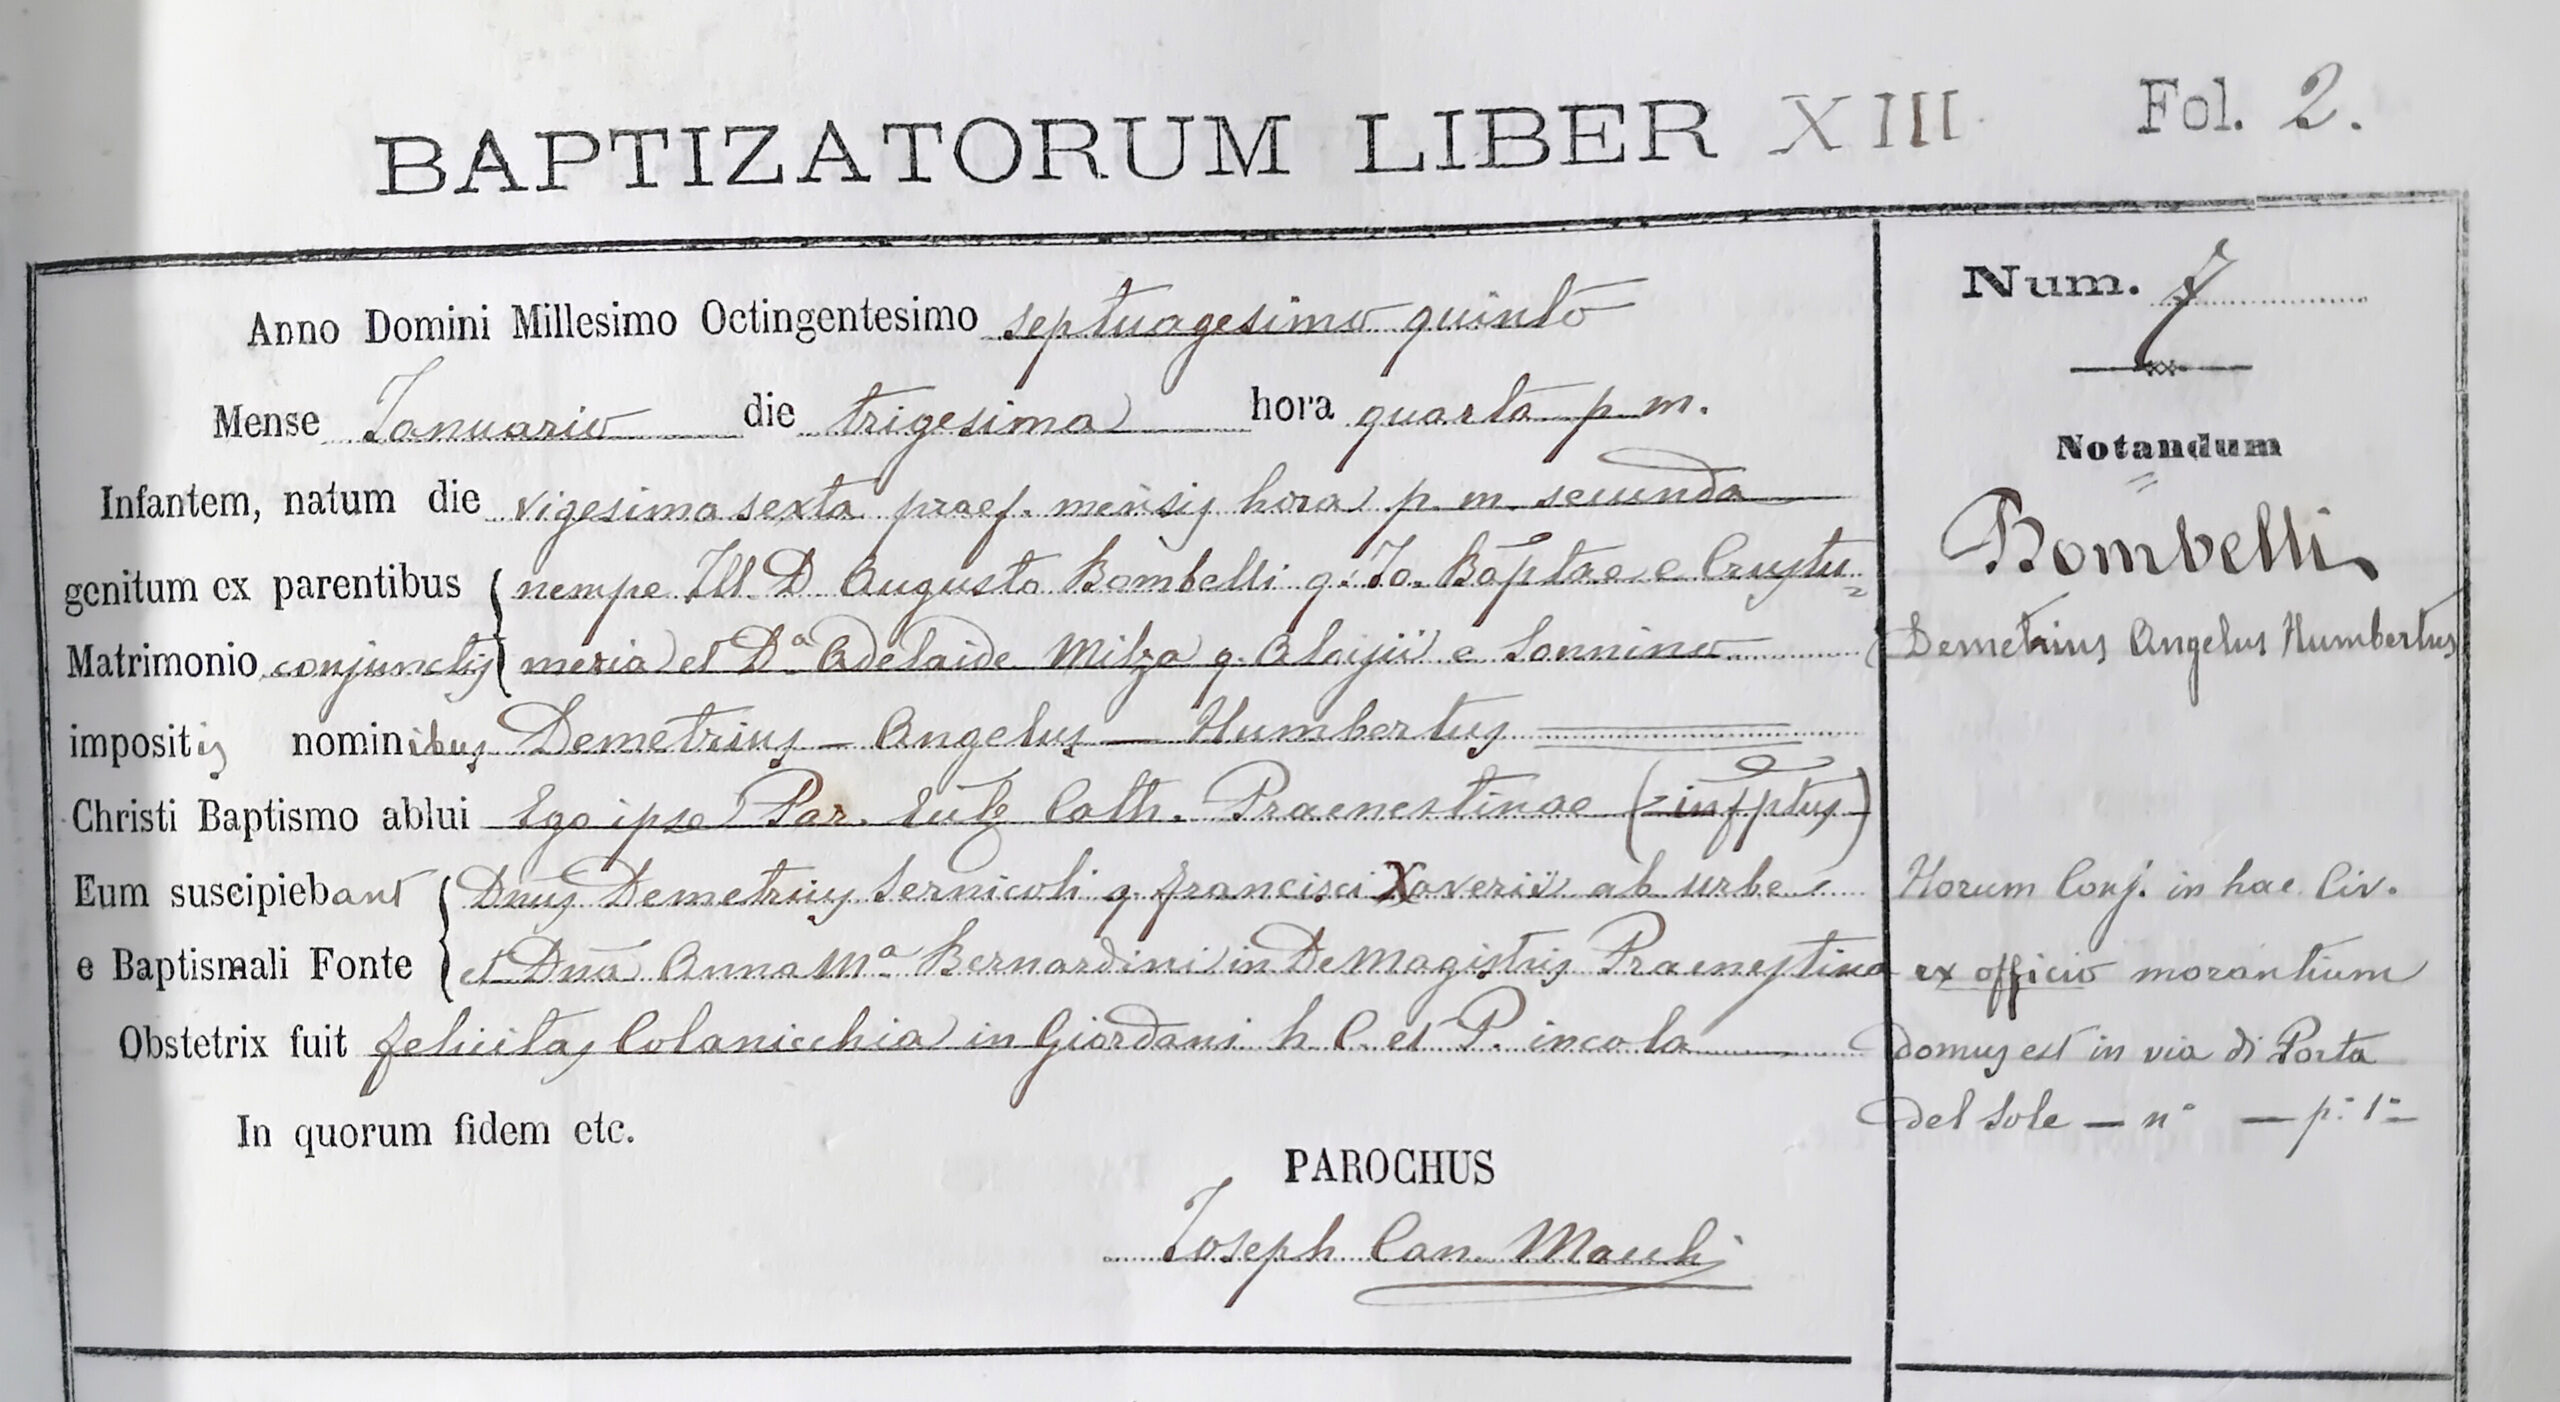 BAPTIZATORUM LIBER XIII. Fol. 2.
Anno Domini Millesimo Octingentesimo septuagesimo quinto
Mense Ianuario die trigesima hora quarta p. m.
Infantem, natum die vigesima sexta praef. mensis hora p. m. secunda
genitum ex parentibus nempe Ill. D. Augusto Bombelli q. Io. Baptae e Crustu=
Matrimonio conjunctis meria et Da. Adelaide Milza q. Aloisii e Sonnino
impositis nominibus Demetrius - Angelus - Humbertus
Christi Baptismo ablui Ego ipse Par. Cath. Praenestinae (infptus)
Eum suscipiebant Dnus Demetrius Sernicoli q. Francisci Xaverii ab urbe
e Baptismali Fonte et Dna Anna Ma. Bernardini in De Magistris Praenestina
Obstetrix fuit Felicitas Colanicchia in Giordani h. C. et P. incola
In quorum fidem etc.
PAROCHUS
Ioseph Can. Macchi
Num. 7
Notandum
Bombelli
Demetrius Angelus Humbertus
Horum Conj. in hac Civ.
ex officio morantium
domus est in via di Porta
del Sole — n° — p: 1°